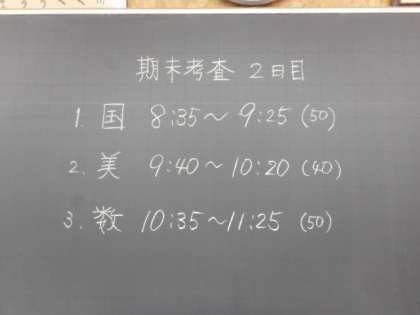 期末考査 2日目
1. 国 8:35〜9:25 (50)
2. 美 9:40〜10:20 (40)
3. 数 10:35〜11:25 (50)